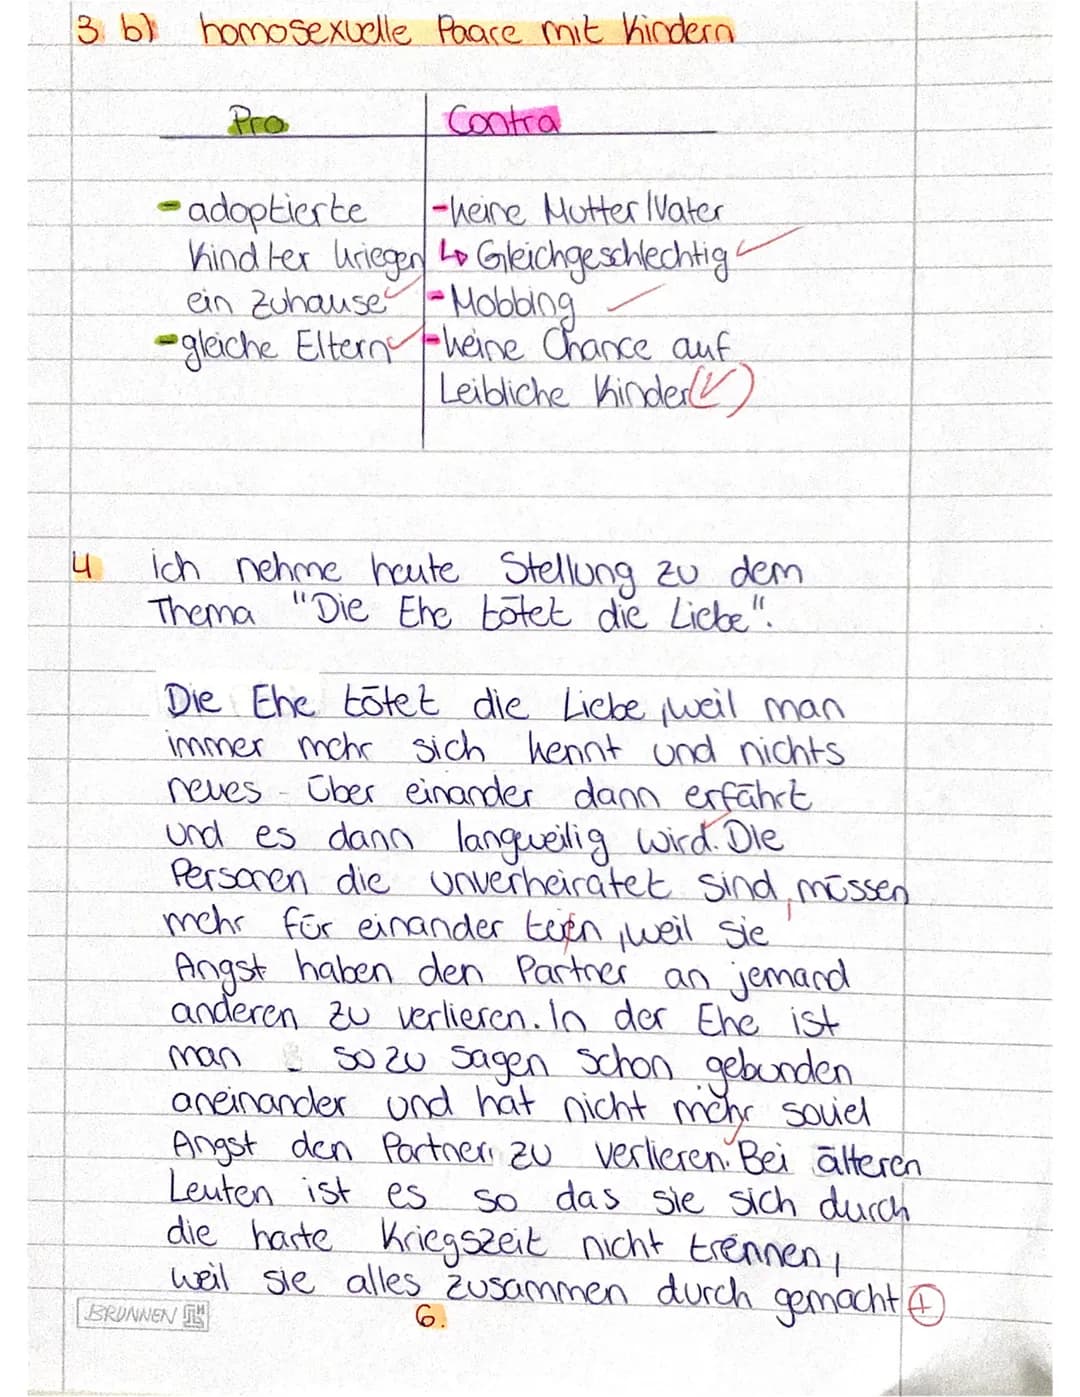 3. b) homosexuelle Paare mit Kindern
Pro
Contra
- adoptierte
Kindter kriegen
ein Zuhause
- gleiche Eltern
- keine Mutter/Vater
↳ Gleichgeschlechtig
- Mobbing
- keine Chance auf
Leibliche Kinder (✓)
4 ich nehme heute Stellung zu dem
Thema "Die Ehe tötet die Liebe".
Die Ehe tötet die Liebe, weil man
immer mehr sich kennt und nichts
neues über einander dann erfährt
und es dann langweilig wird. Die
Personen die unverheiratet sind, müssen
mehr für einander tuen, weil sie
Angst haben den Partner an jemand
anderen zu verlieren. In der Ehe ist
man so zu sagen schon gebunden
aneinander und hat nicht mehr soviel
Angst den Partner zu verlieren. Bei älteren
Leuten ist es so das sie sich durch
die harte Kriegszeit nicht trennen,
weil sie alles zusammen durch gemacht
BRUNNEN
6.